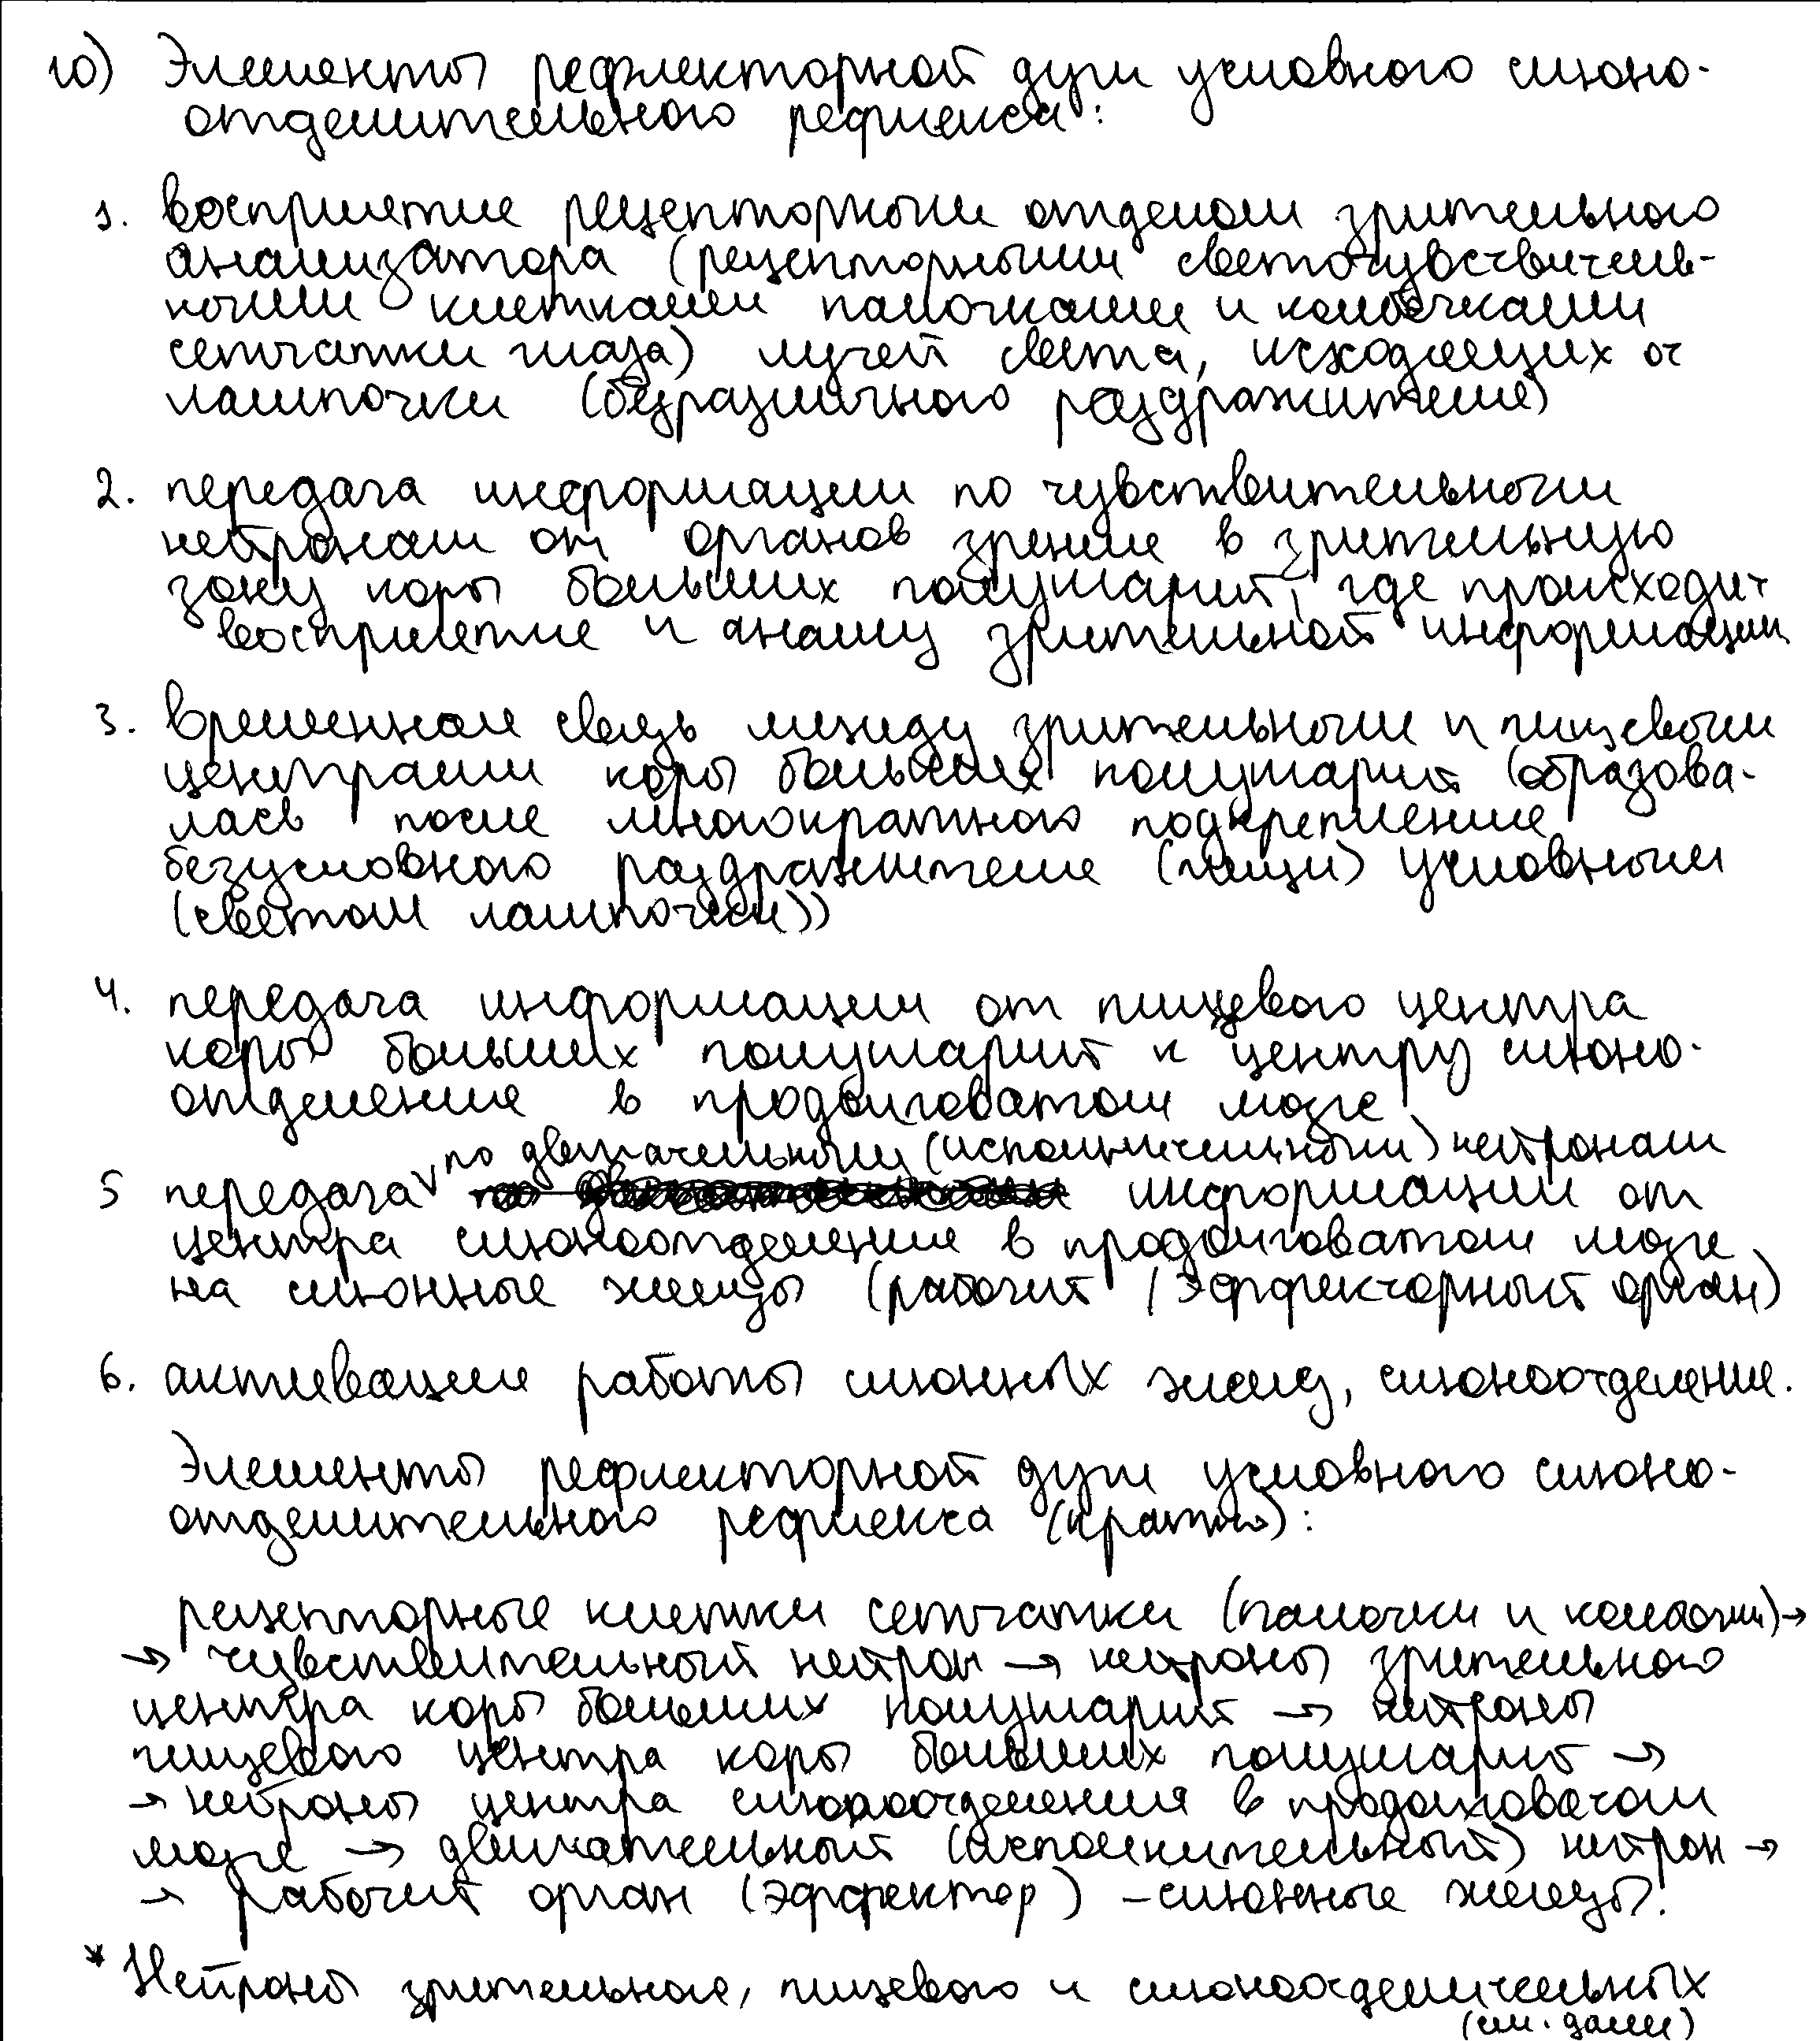 10) Элементы рефлекторной дуги условного слюно-
отделительного рефлекса:
1. восприятие рецепторным отделом зрительного
анализатора (рецепторными светочувствитель-
ными клетками палочками и колбочками
сетчатки глаза) лучей света, исходящих от
лампочки (безразличного раздражителя)
2. передача информации по чувствительным
нейронам от органов зрения в зрительную
зону коры больших полушарий, где происходит
восприятие и анализ зрительной информации
3. временная связь между зрительным и пищевым
центрами коры больших полушарий (образова-
лась после многократного подкрепления
безусловного раздражителя (пищи) условным
(светом лампочки))
4. передача информации от пищевого центра
коры больших полушарий к центру слюно-
отделения в продолговатом мозге
по двигательным (исполнительным) нейронам
5 передача информации от
центра слюноотделения в продолговатом мозге
на слюнные железы (рабочий / эффекторный орган)
6. активация работы слюнных желез, слюноотделение.
Элементы рефлекторной дуги условного слюно-
отделительного рефлекса (кратко):
рецепторные клетки сетчатки (палочки и колбочки) →
→ чувствительный нейрон → нейроны зрительного
центра коры больших полушарий → нейроны
пищевого центра коры больших полушарий →
→ нейроны центра слюноотделения в продолговатом
мозге → двигательный (исполнительный) нейрон →
→ рабочий орган (эффектор) – слюнные железы.
* Нейроны зрительного, пищевого и слюноотделительных
(см. далее)